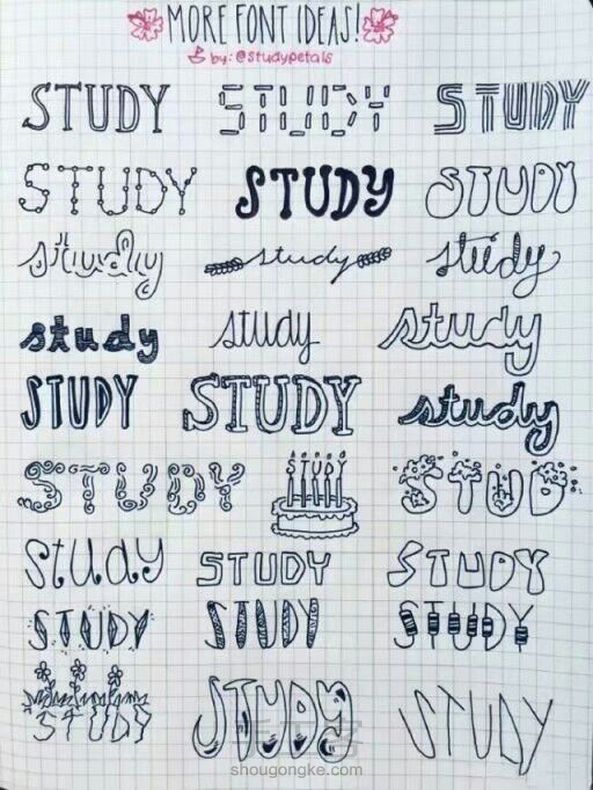 MORE FONT IDEAS!
by: @studypetals
STUDY STUDY STUDY
STUDY STUDY STUDY
study study study
study study study
STUDY STUDY study
STUDY STUDY STUD
study STUDY STUDY
STUDY STUDY STUDY
STUDY STUDY STUDY
手工客
shougongke.com